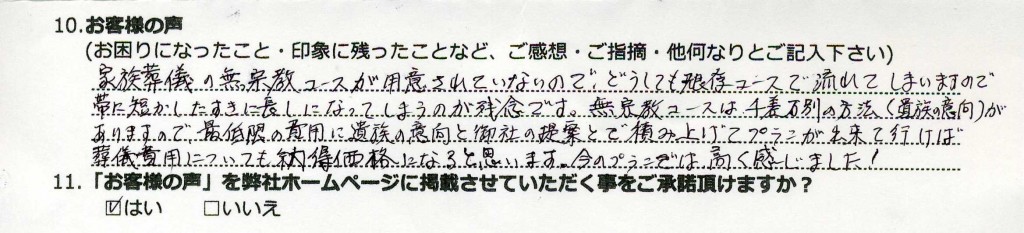 10.お客様の声
(お困りになったこと・印象に残ったことなど、ご感想・ご指摘・他何なりとご記入下さい)
家族葬儀の無宗教コースが用意されていないので、どうしても既存コースで流れてしまいますので
帯に短かしたすきに長しになってしまうのが残念です。無宗教コースは千差万別の方法(遺族の意向)が
ありますので、最低限の費用に遺族の意向と御社の提案とで積み上げてプランが出来て行けば
葬儀費用についても納得価格になると思います。今のプランでは高く感じました!
11.「お客様の声」を弊社ホームページに掲載させていただく事をご承諾頂けますか？
☑はい □いいえ